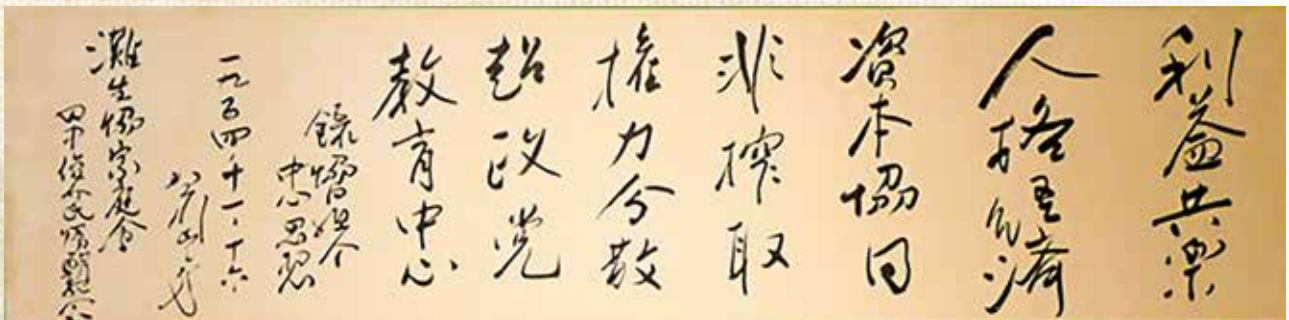 利益共楽
人格経済
資本協同
非搾取
権力分散
超政党
教育中心
録協組合
中心思想
一九五四十一・十六
灘生協家庭会
田中俊介氏